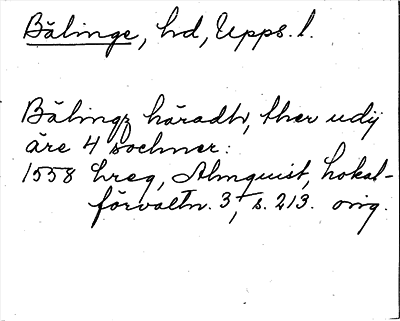 Bälinge, hd, Upps. l.
Bälingz häradtv, ther udij
äre 4 sochner:
1558 hreg, Almquist, Lokal-
förvaltn. 3, s. 213. orig.